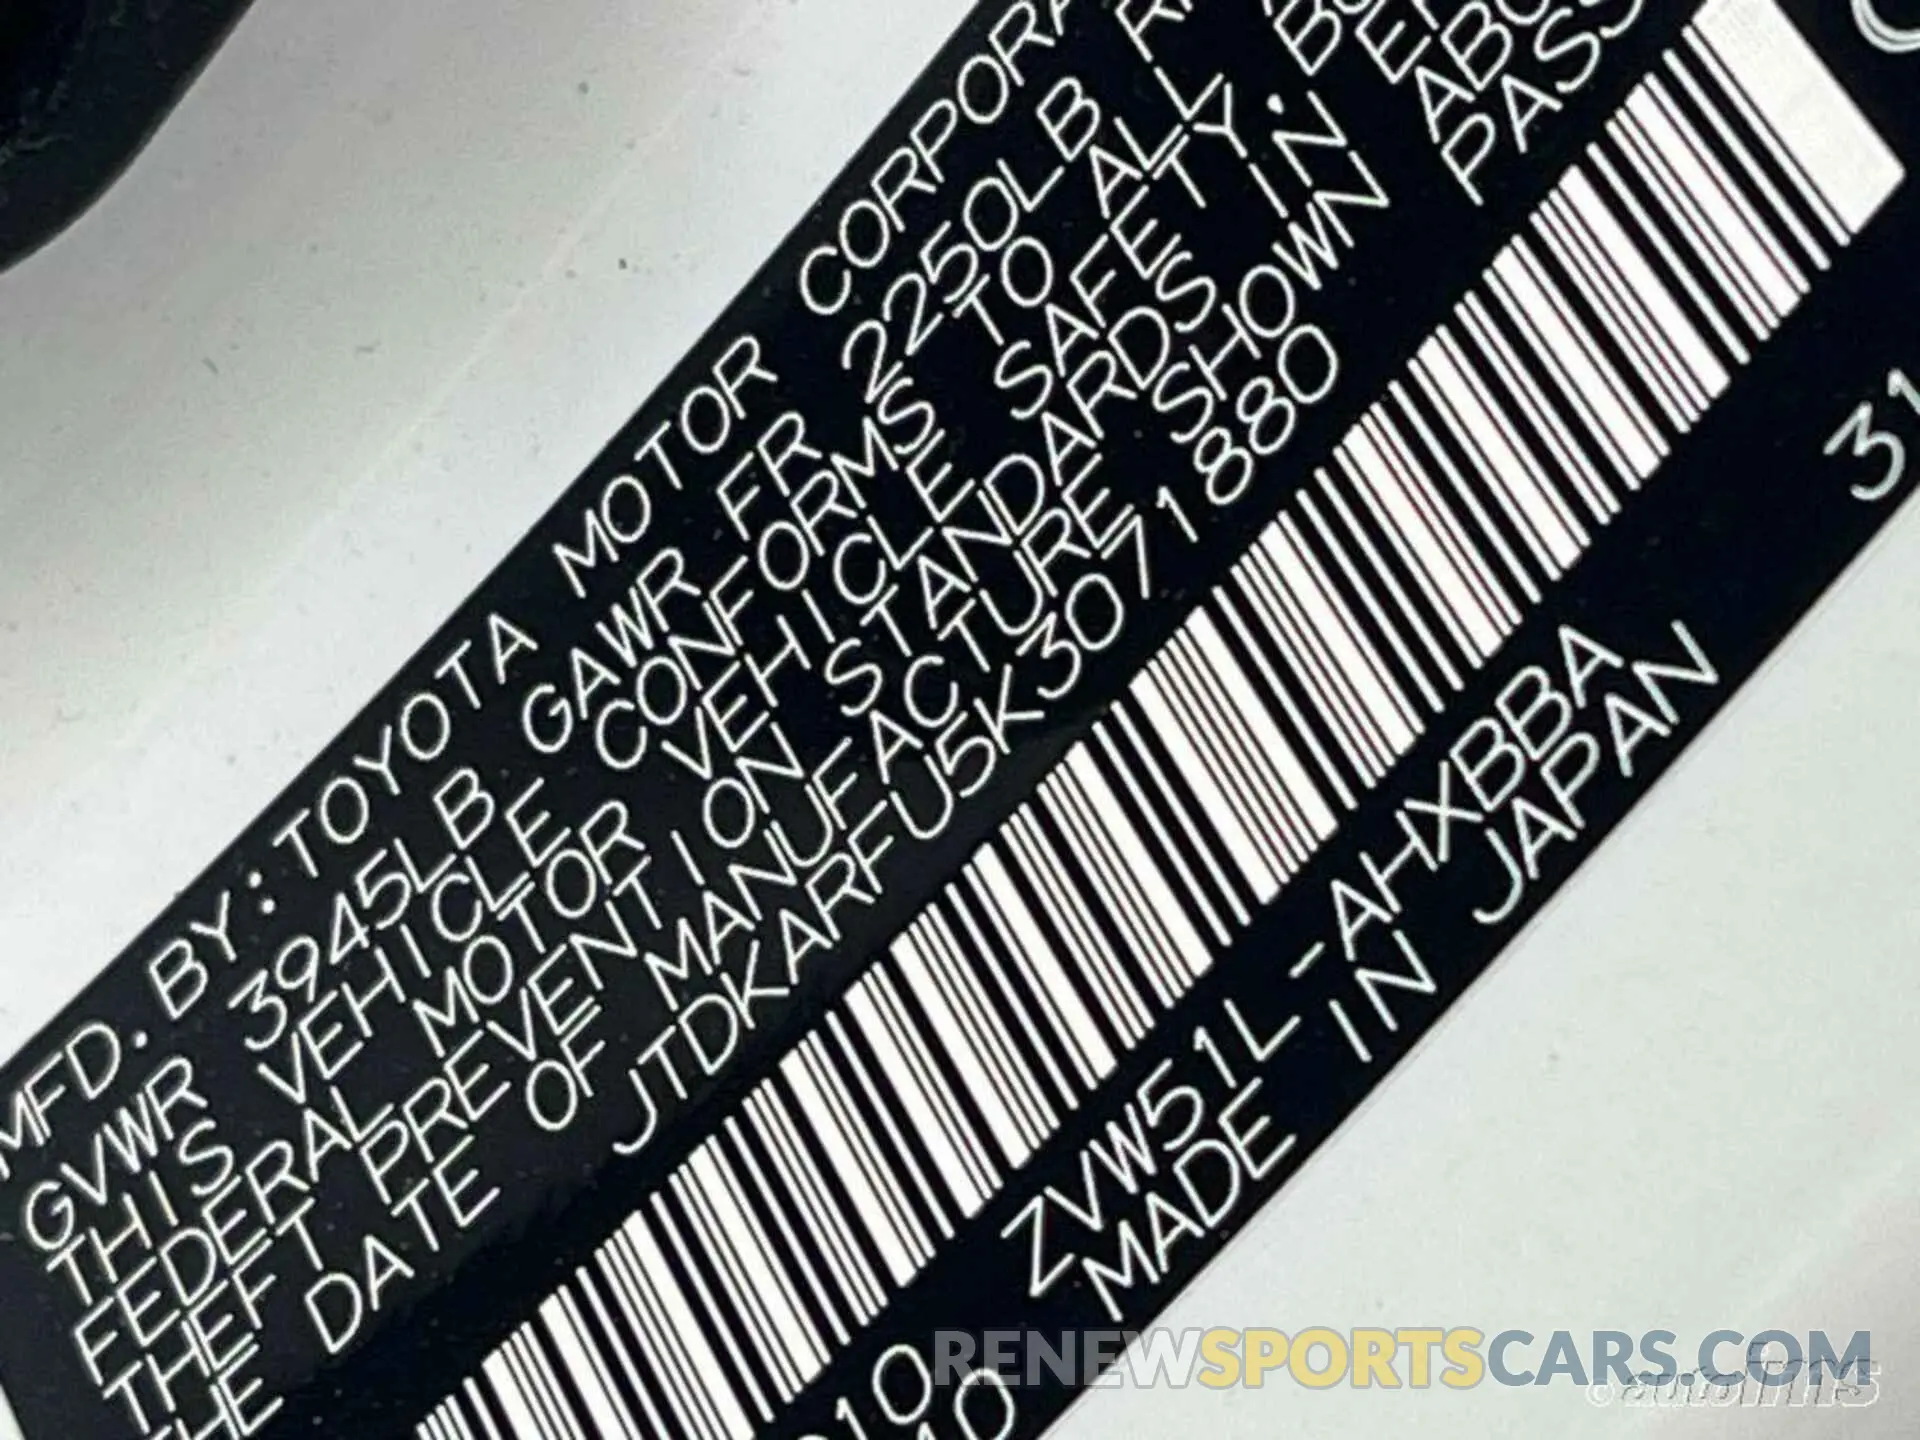 MFD. BY: TOYOTA MOTOR CORPORA
GVWR 3945LB GAWR FR 2250LB
THIS VEHICLE CONFORMS TO ALL
FEDERAL MOTOR VEHICLE SAFETY,
THEFT PREVENTION STANDARDS IN
THE DATE OF MANUFACTURE SHOWN
JTDKARFU5K3071880
PASS
31
ZVW51L-AHXBBA
MADE IN JAPAN
RENEWSPORTSCARS.COM